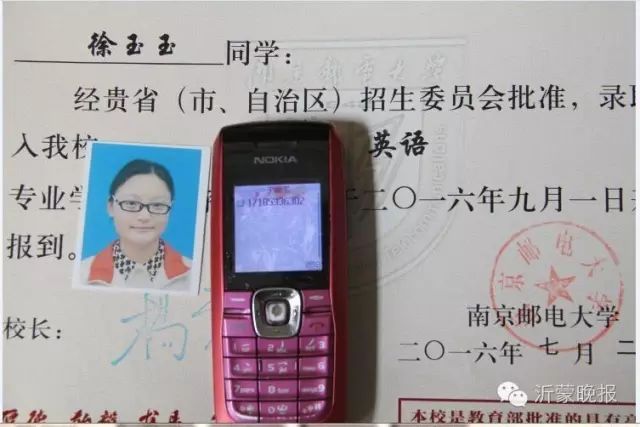 徐玉玉 同学:
南京邮电大学
经贵省（市、自治区）招生委员会批准，录取
入我校 英语
专业学 于二〇一六年九月一日
报到。
NOKIA
17185336302
校长: 南京邮电大学
南京邮电大学
二〇一六年七月二
本校是教育部批准的具有
沂蒙晚报